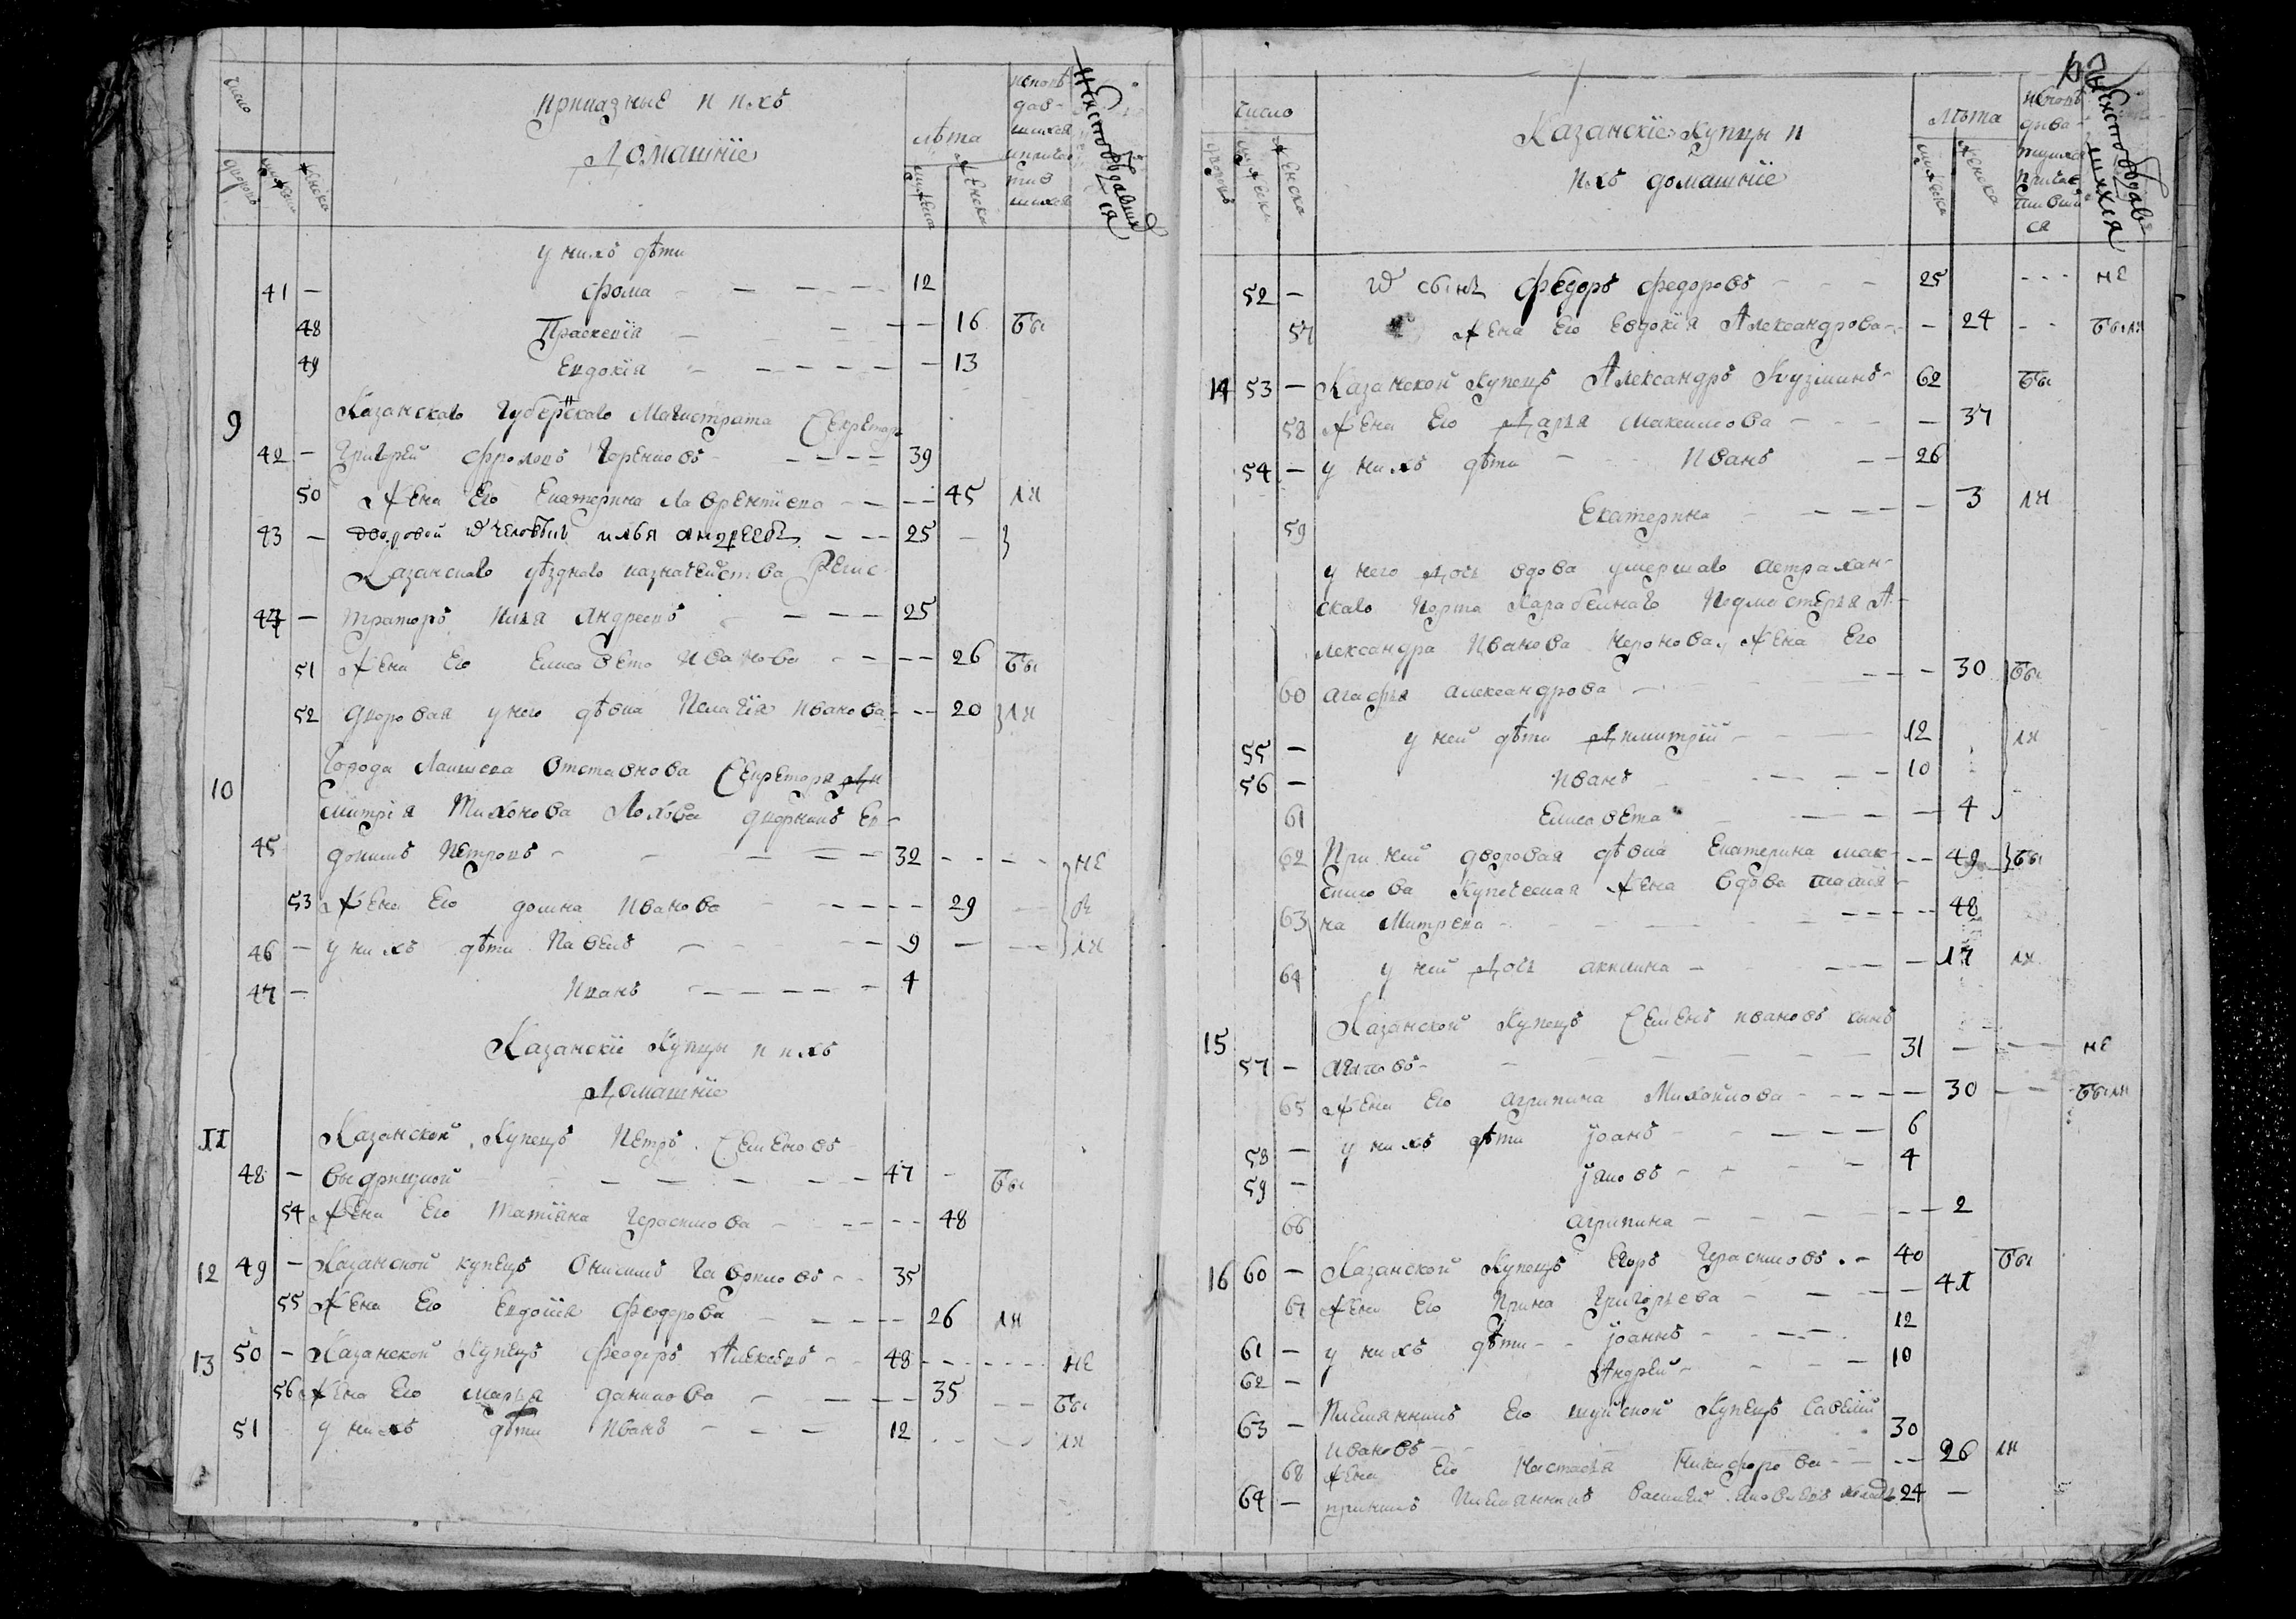 число
приказные и ихъ
Домашнїе
лѣта
исповѣ
дав-
шихся
и причас
тив
шихся
Неисповѣдавших
ся
дворовъ
мужеска
женска
мужеска
женска
у нихъ дѣти
41 — Фома — — — 12
48 Праскевїя — — — 16 бы
49 Евдокїя — — — — 13
9 Казанскаго Губернскаго Магистрата Секретарь
42 — Григорей Фроловъ — — — — 39
50 Жена Его Екатерина Лаврентїева — — — 45 ли
43 — дворовой человѣкъ илья андреевъ — — 25 —
Казанскаго уѣзднаго казначейства Регис
44 — траторъ Илья Андреевъ — — — 25
51 Жена Его Елисавета Иванова — — — 26 бы
52 дворовая у него дѣвка Пелагїя иванова — — 20 ли
10 Города Лаишева Отставнова Секретаря Ди
митрїя Тихонова дворникъ Ев-
45 докимъ Петровъ — — — — 32 — — — не
53 Жена Его домна Иванова — — — — 29 — бы
46 — у нихъ дѣти Павелъ — — — 9 — — ли
47 — Иванъ — — — — — 4
Казанскїе Купцы и ихъ
Домашнїе
11 Казанской Купецъ Петръ Семеновъ
48 — — — — — — 47 — бы
54 Жена Его Татїана Герасимова — — — 48
12 49 — Казанской купецъ Онисимъ Гавриловъ — — 35
55 Жена Его Евдокїя Федорова — — — — 26 ли
13 50 — Казанской Купецъ Феодоръ Алексѣевъ — — 48 — — — не
56 Жена Его марья данилова — — — — 35 — — бы
51 у нихъ дѣти Иванъ — — — 12 — — ли
число
Казанскїе Купцы и
ихъ домашнїе
Лѣта
исповѣ
дыва-
вшихся
причас
тивши
ся
Неисповѣдав
шихся
дворовъ
мужеска
женска
мужеска
женска
52 — сынъ Федоръ Федоровъ — — — 25 — — — не
57 Жена Его Евдокїя Александрова — — 24 — — были
14 53 — Казанской Купецъ Александръ Кузминъ — 62 бы
58 Жена Его Дарья Максимова — — — — 37
54 — у нихъ дѣти — — Иванъ — — 26
59 Екатерина — — — — — 3 ли
у него дочь вдова умершаго Астрахан-
скаго Порта Карабелнаго Подмастерья А-
лександра Иванова Неронова, Жена Его
60 агафья александрова — — — — 30 бы
55 — у ней дѣти Димитрїй — — — 12 ли
56 — Иванъ — — — — 10
61 Елисавета — — — — — 4
62 При ней дворовая дѣвка Екатерина мак- — — 49 бы
симова Купеческая Жена вдова татїя-
63 на Митрева — — — — — — 48
64 у ней Дочь акилина — — — — 17 ли
15 Казанской Купецъ Семенъ ивановъ сынъ
57 — — — — — — — 31 — — не
65 Жена Его агрипина Михайлова — — — — — 30 — — были
58 — у нихъ дѣти Їоанъ — — — — — 6
59 — Їаковъ — — — — 4
66 агрипина — — — — — — 2
16 60 — Казанской Купецъ Егоръ Герасимовъ . — 40 бы
67 Жена Его Ирина Григорьева — — — — 41
61 — у нихъ дѣти — — Їоаннъ — — — 12
62 — Андрей — — — — 10
63 — Племянникъ Его шуйской Купецъ Савелий 30
ивановъ — —
68 Жена Его Настасья Никифорова — — — — 26 ли
64 — Племянникъ василей Яковлевъ 24 —